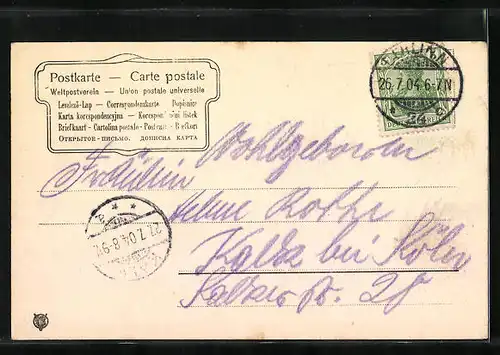 Postkarte — Carte postale
Weltpostverein — Union postale universelle
Levelező-Lap — Correspondenzkarte Dopisnice
Karta korespondencyjna — Korespondenční lístek
Briefkaart - Cartolina postale - Postcard - Brefkort
ОТКРЫТОЕ ПИСЬМО. ДОПИСНА КАРТА
BERLIN N.
26.7.04.6-7N
24
Wohlgeboren
Fräulein
Rothe
Kalk bei Köln
27.7.04.8-9V.
Kalker Str. 28